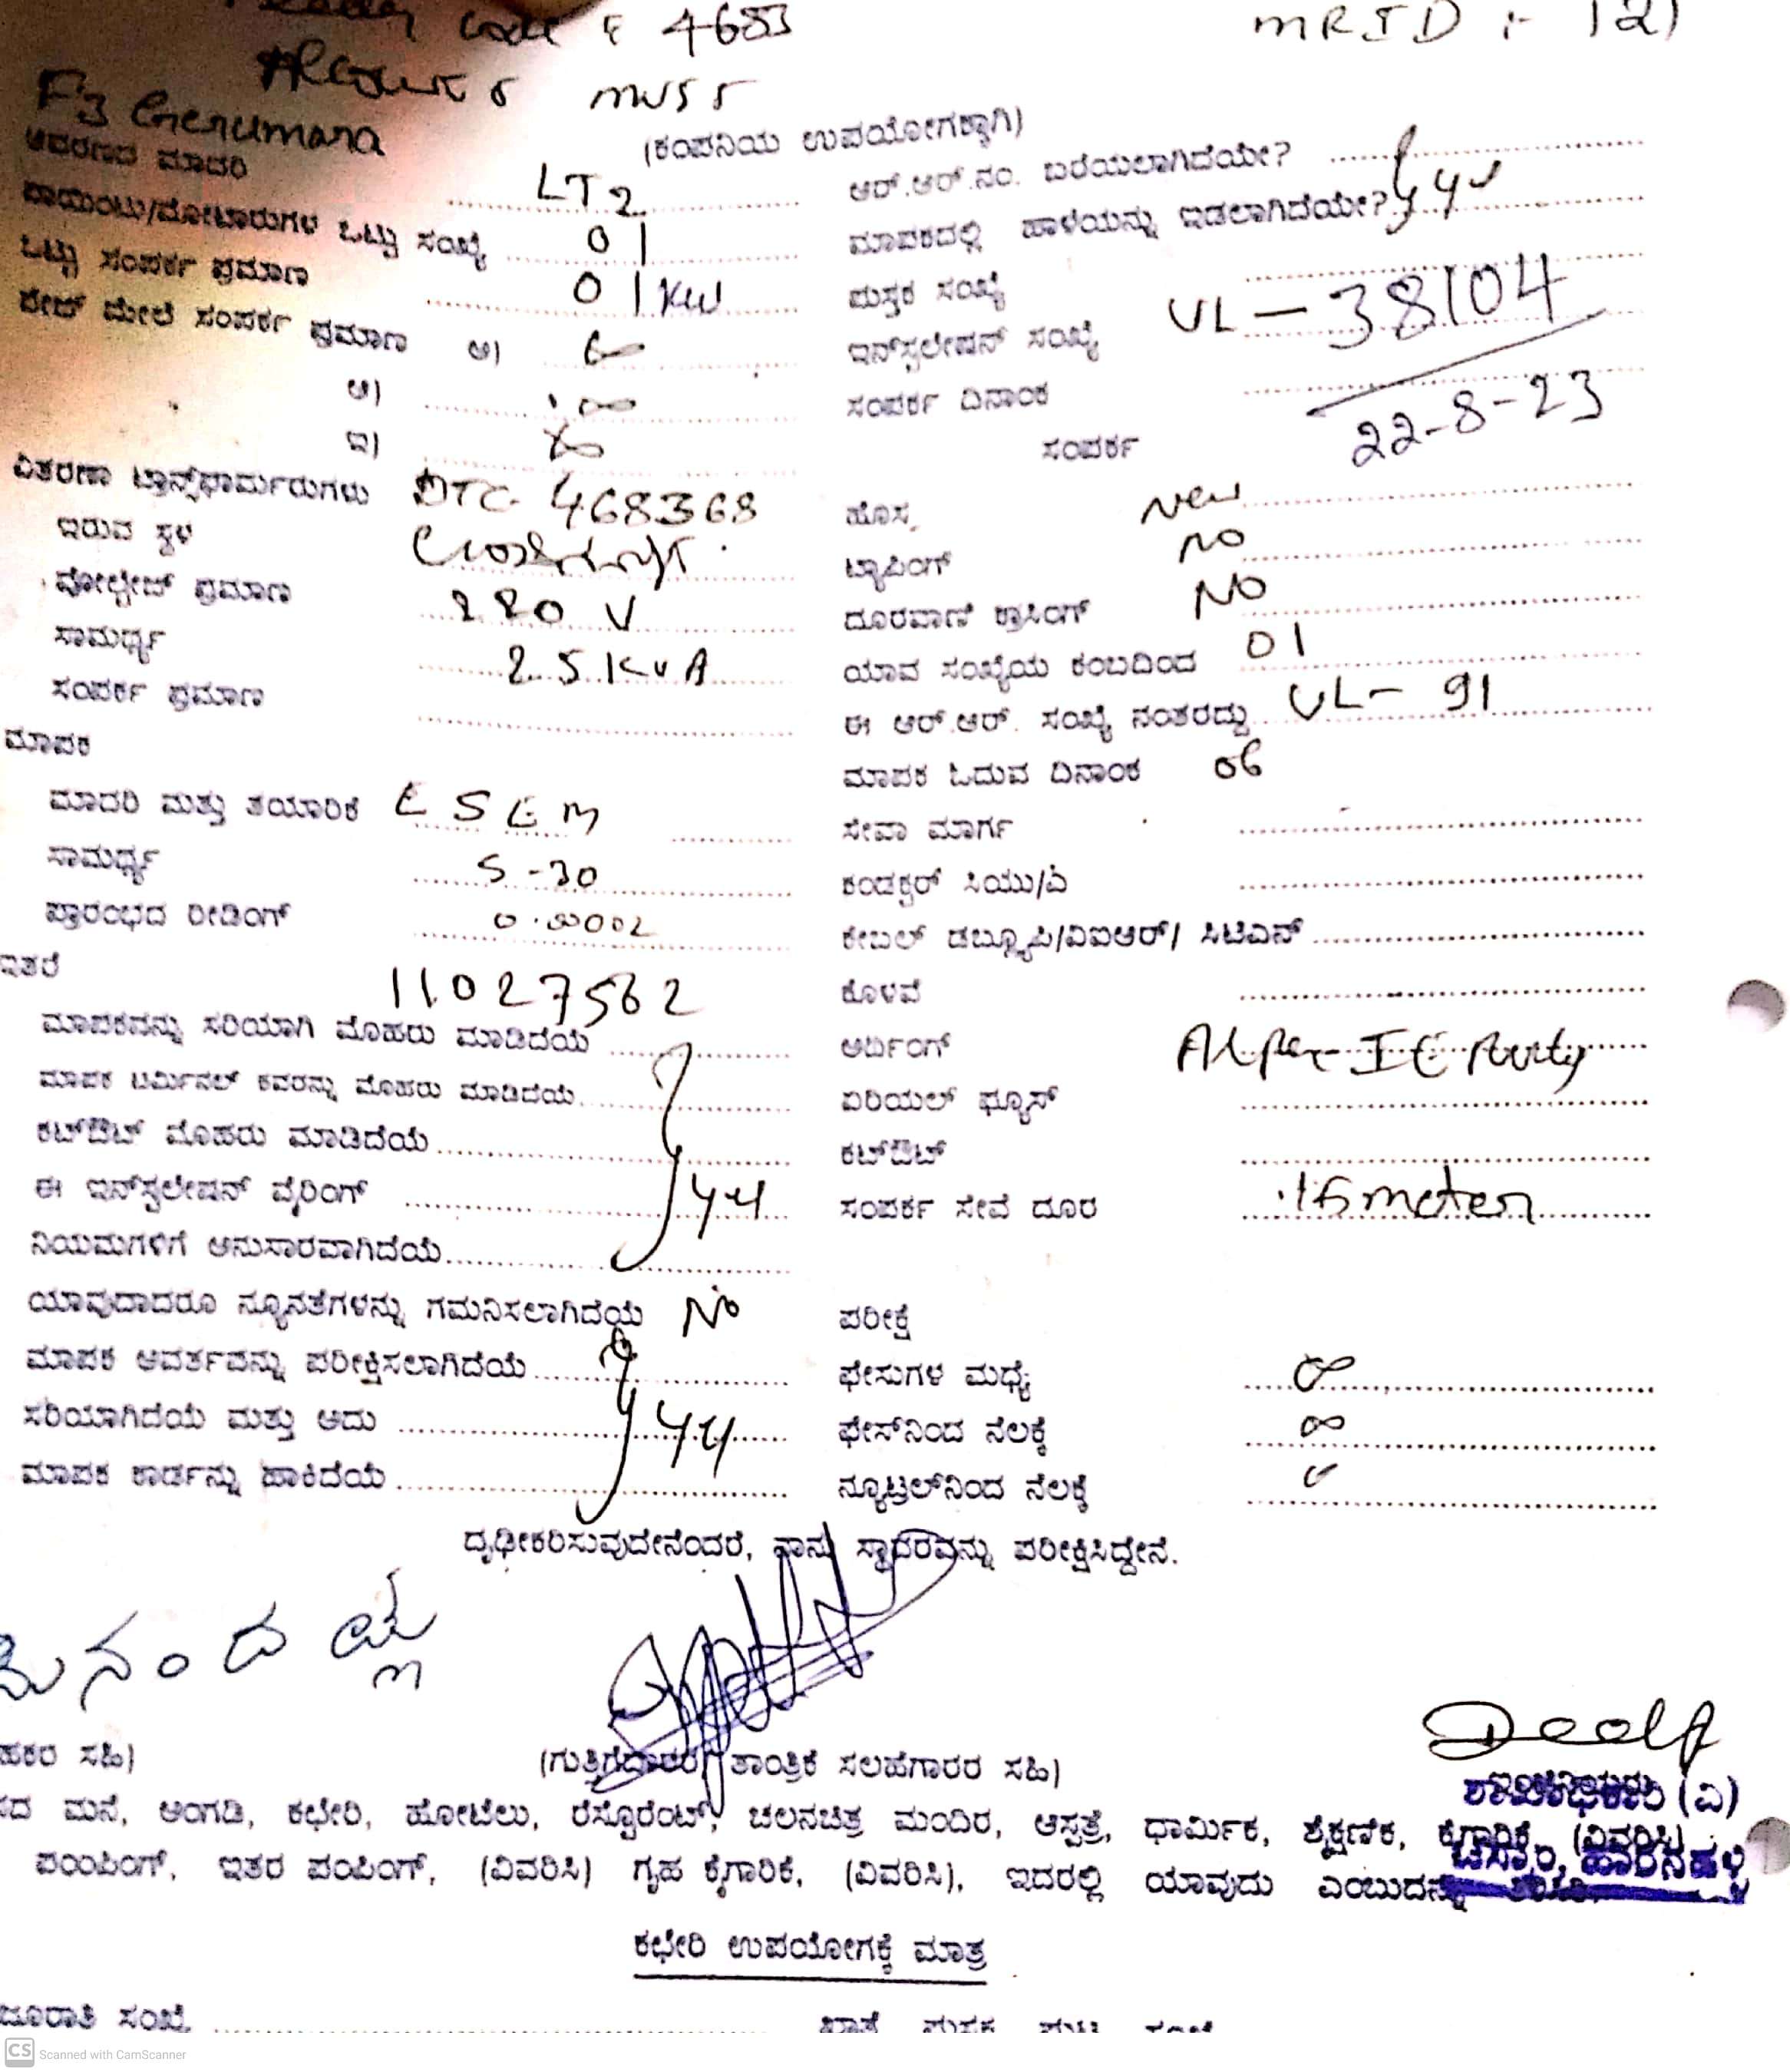 code : 4683 MRID :- 121
MUSS
F3 Gerumara
(ಕಂಪನಿಯ ಉಪಯೋಗಕ್ಕಾಗಿ)
ಆವರಣದ ಮಾದರಿ LT2 ಆರ್.ಆರ್.ನಂ. ಬರೆಯಲಾಗಿದೆಯೇ?
ಪಾಯಿಂಟು/ಮೋಟಾರುಗಳ ಒಟ್ಟು ಸಂಖ್ಯೆ 01 ಮಾಪಕದಲ್ಲಿ ಹಾಳೆಯನ್ನು ಇಡಲಾಗಿದೆಯೇ?
ಒಟ್ಟು ಸಂಪರ್ಕ ಪ್ರಮಾಣ 01 KW ಪುಸ್ತಕ ಸಂಖ್ಯೆ
ಫೇಜ್ ಮೇಲೆ ಸಂಪರ್ಕ ಪ್ರಮಾಣ ಅ) ಇನ್‌ಸ್ಟಲೇಷನ್ ಸಂಖ್ಯೆ UL - 38104
ಆ) ಸಂಪರ್ಕ ದಿನಾಂಕ 22-8-23
ಇ) ಸಂಪರ್ಕ
ವಿತರಣಾ ಟ್ರಾನ್ಸ್‌ಫಾರ್ಮರುಗಳು DTC 468368 ಹೊಸ New
ಇರುವ ಸ್ಥಳ ಟ್ಯಾಪಿಂಗ್ NO
ವೋಲ್ಟೇಜ್ ಪ್ರಮಾಣ 220 V ದೂರವಾಣಿ ಕ್ರಾಸಿಂಗ್ NO
ಸಾಮರ್ಥ್ಯ 25 KVA ಯಾವ ಸಂಖ್ಯೆಯ ಕಂಬದಿಂದ 01
ಸಂಪರ್ಕ ಪ್ರಮಾಣ ಈ ಆರ್.ಆರ್. ಸಂಖ್ಯೆ ನಂತರದ್ದು UL - 91
ಮಾಪಕ ಮಾಪಕ ಓದುವ ದಿನಾಂಕ 06
ಮಾದರಿ ಮತ್ತು ತಯಾರಿಕೆ ESEM ಸೇವಾ ಮಾರ್ಗ
ಸಾಮರ್ಥ್ಯ 5-30 ಕಂಡಕ್ಟರ್ ಸಿಯು/ಎ
ಪ್ರಾರಂಭದ ರೀಡಿಂಗ್ 0.00002 ಕೇಬಲ್ ಡಬ್ಲ್ಯೂಪಿ/ವಿಐಆರ್/ ಸಿಟಿಎಸ್
ಇತರೆ 11027562 ಕೊಳವೆ
ಮಾಪಕವನ್ನು ಸರಿಯಾಗಿ ಮೊಹರು ಮಾಡಿದೆಯೆ ಅರ್ಥಿಂಗ್ As Per IE Rules
ಮಾಪಕ ಟರ್ಮಿನಲ್ ಕವರನ್ನು ಮೊಹರು ಮಾಡಿದೆಯೆ ಏರಿಯಲ್ ಫ್ಯೂಸ್
ಕಟ್‌ಔಟ್ ಮೊಹರು ಮಾಡಿದೆಯೆ ಕಟ್‌ಔಟ್
ಈ ಇನ್‌ಸ್ಟಲೇಷನ್ ವೈರಿಂಗ್ ಸಂಪರ್ಕ ಸೇವೆ ದೂರ 15 meter
ನಿಯಮಗಳಿಗೆ ಅನುಸಾರವಾಗಿದೆಯೆ
ಯಾವುದಾದರೂ ನ್ಯೂನತೆಗಳನ್ನು ಗಮನಿಸಲಾಗಿದೆಯೆ No ಪರೀಕ್ಷೆ
ಮಾಪಕ ಆವರ್ತವನ್ನು ಪರೀಕ್ಷಿಸಲಾಗಿದೆಯೆ ಫೇಸುಗಳ ಮಧ್ಯೆ ∞
ಸರಿಯಾಗಿದೆಯೆ ಮತ್ತು ಅದು ಫೇಸ್‌ನಿಂದ ನೆಲಕ್ಕೆ ∞
ಮಾಪಕ ಕಾರ್ಡನ್ನು ಹಾಕಿದೆಯೆ ನ್ಯೂಟ್ರಲ್‌ನಿಂದ ನೆಲಕ್ಕೆ
ದೃಢೀಕರಿಸುವುದೇನೆಂದರೆ, ನಾನು ಸ್ಥಾವರವನ್ನು ಪರೀಕ್ಷಿಸಿದ್ದೇನೆ.
ಹಕರ ಸಹಿ) (ಗುತ್ತಿಗೆದಾರರ/ ತಾಂತ್ರಿಕ ಸಲಹೆಗಾರರ ಸಹಿ)
ಶಾಖಾಧಿಕಾರಿ (ವಿ)
ಸದ ಮನೆ, ಅಂಗಡಿ, ಕಛೇರಿ, ಹೋಟೆಲು, ರೆಸ್ಟೊರೆಂಟ್, ಚಲನಚಿತ್ರ ಮಂದಿರ, ಆಸ್ಪತ್ರೆ, ಧಾರ್ಮಿಕ, ಶೈಕ್ಷಣಿಕ, ಕೈಗಾರಿಕೆ, (ವಿವರಿಸಿ)
ಪಂಪಿಂಗ್, ಇತರ ಪಂಪಿಂಗ್, (ವಿವರಿಸಿ) ಗೃಹ ಕೈಗಾರಿಕೆ, (ವಿವರಿಸಿ), ಇದರಲ್ಲಿ ಯಾವುದು ಎಂಬುದನ್ನು
ಚಾಸನಿಂ, ಹಾರನಹಳ್ಳಿ
ಕಛೇರಿ ಉಪಯೋಗಕ್ಕೆ ಮಾತ್ರ
ಜೂರಾತಿ ಸಂಖ್ಯೆ ಖಾತೆ ಪುಸ್ತಕ ಪುಟ ಸಂಖ್ಯೆ
CS Scanned with CamScanner